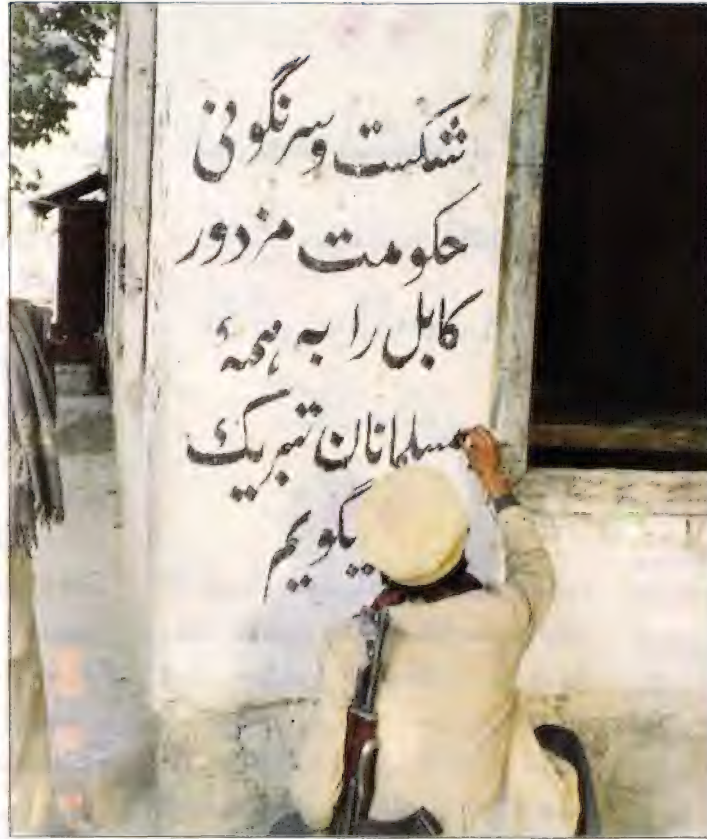 شکست و سرنگونی
حکومت مزدور
کابل را به همهٔ
مسلمانان تبریک
یگویم